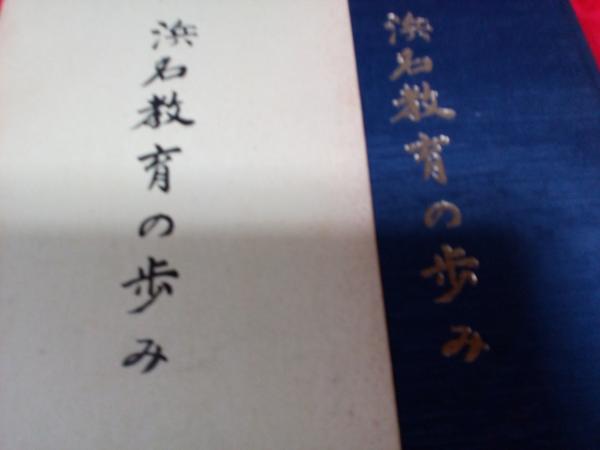 浜名教育の歩み
浜名教育の歩み